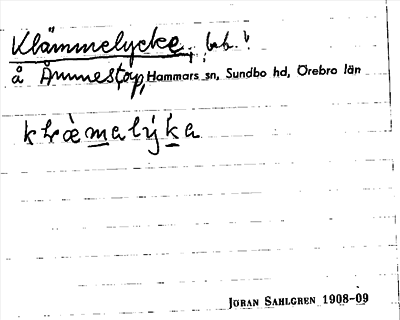 Klämmelycke, beb.
å Åmmestorp, Hammars sn, Sundbo hd, Örebro län
klæ̀malýka
JÖRAN SAHLGREN 1908-09